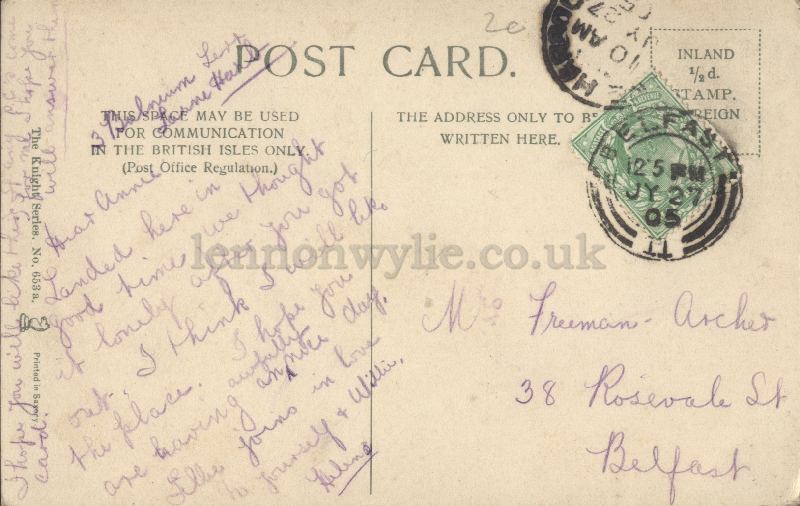 2c
POST CARD.
THIS SPACE MAY BE USED
FOR COMMUNICATION
IN THE BRITISH ISLES ONLY.
(Post Office Regulation.)
THE ADDRESS ONLY TO BE
WRITTEN HERE.
INLAND
½d.
STAMP.
BELFAST
12 5 PM
JY 27
05
10 AM
JY 27
05
Dear Annie
Landed here in
good time we thought
it lonely after you got
out. I think I will like
the place. I hope you
are having an awfully nice day.
Lillie joins in love
to yourself & Willie.
Helena
I hope you will like this
card.
any P.C.s come
for me I hope you
will answer them
Mrs Freeman-Archer
38 Rosevale St
Belfast
The Knight Series. No. 653a.
Printed in
lennonwylie.co.uk